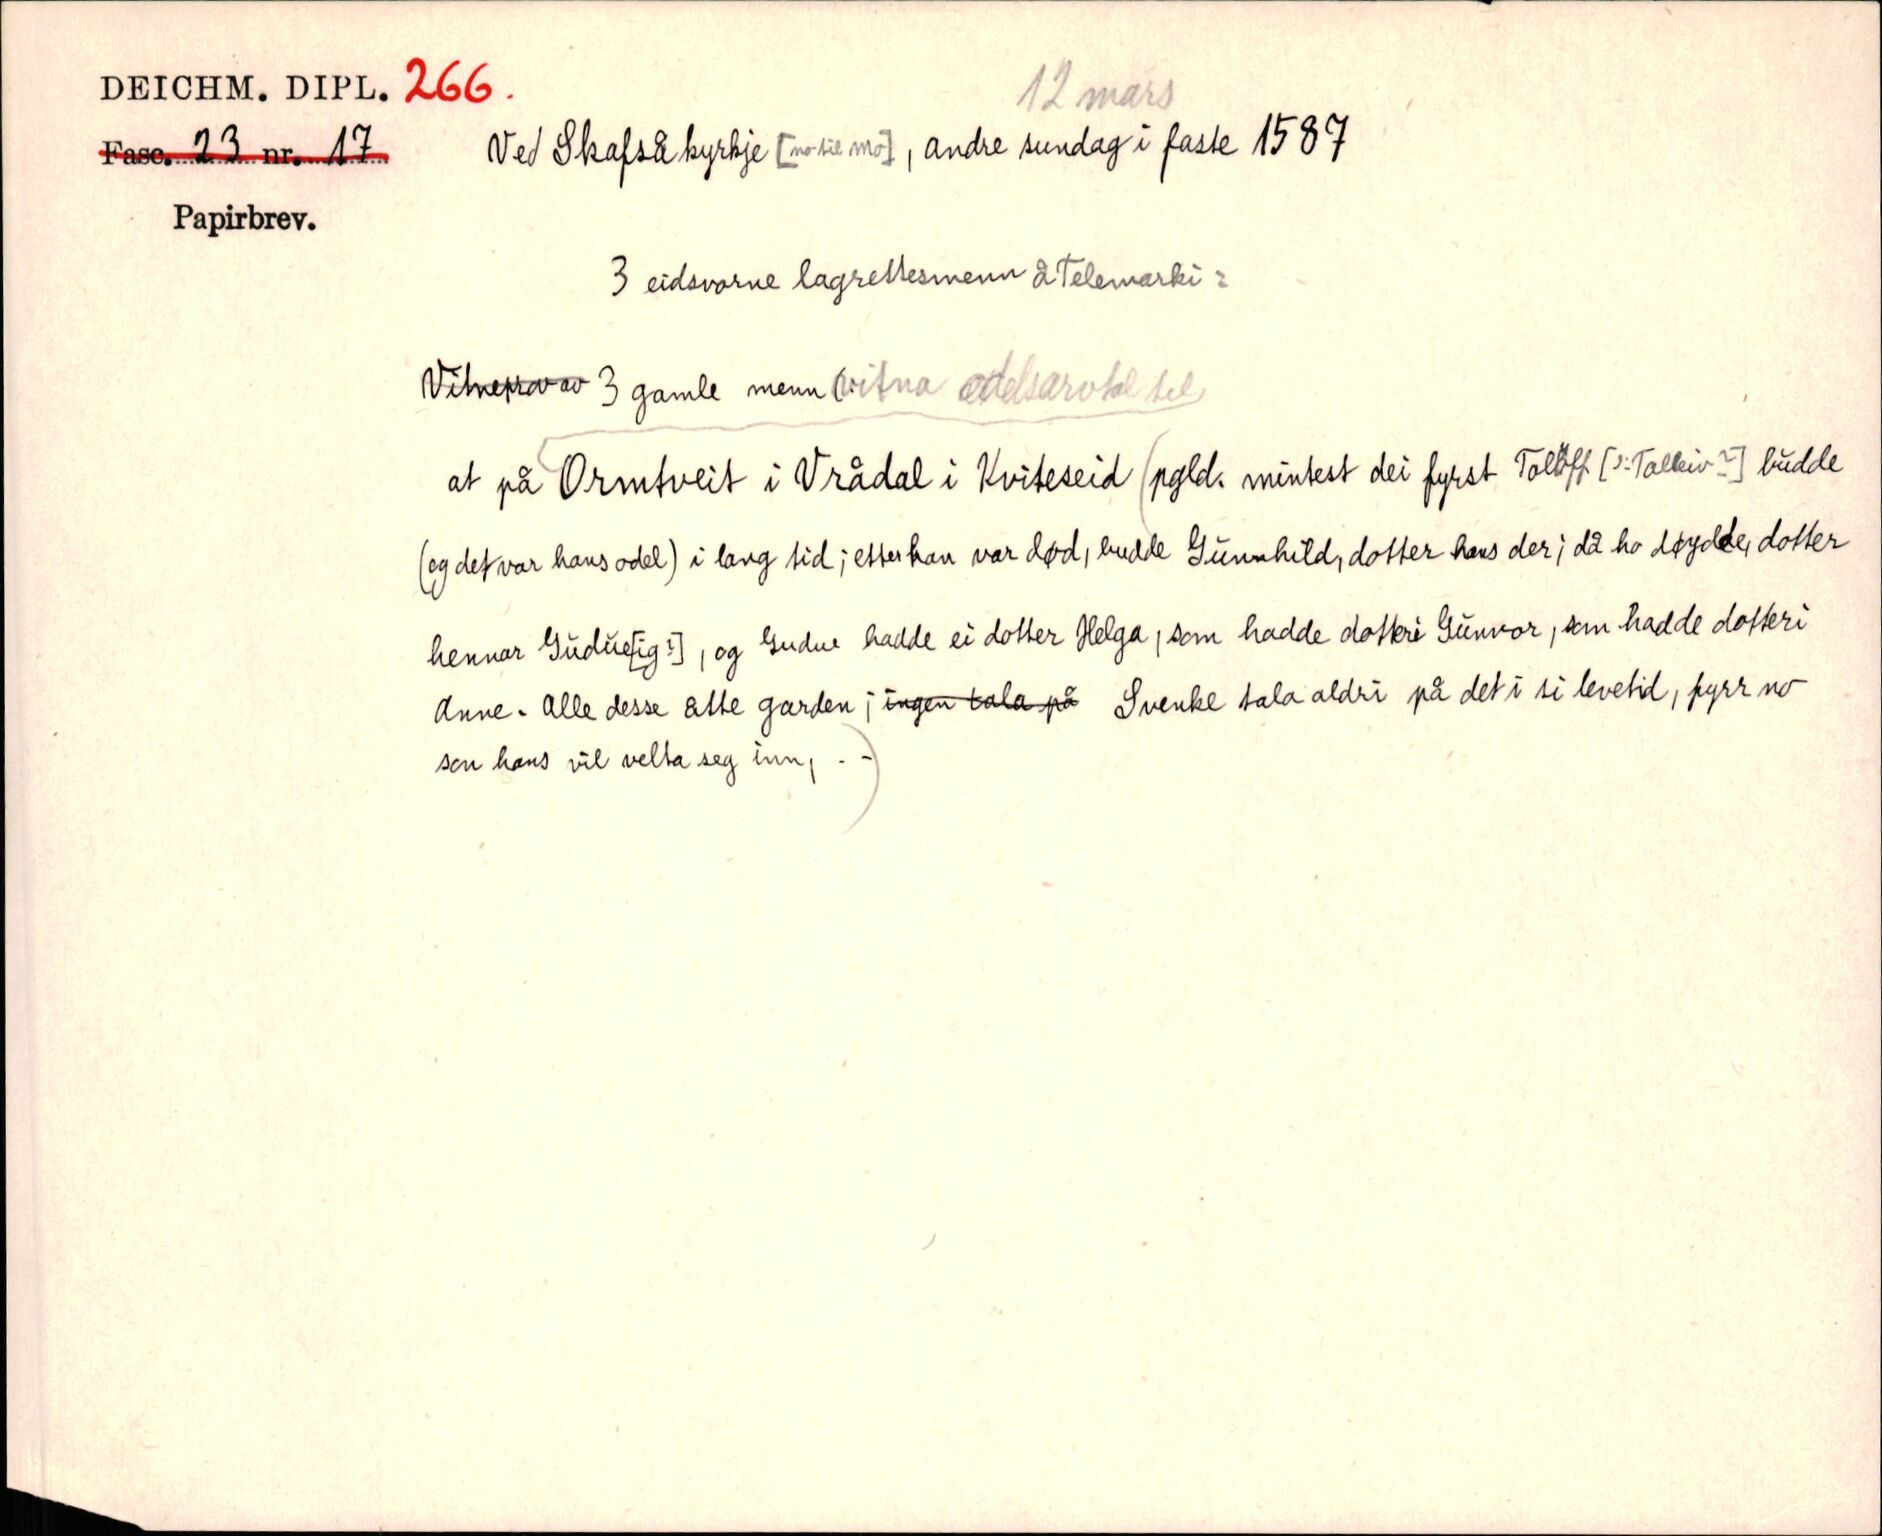 DEICHM. DIPL. 266.
12 mars
Fasc. 23 nr. 17
Ved Skafså kyrkje [no til Mo], andre sundag i faste 1587
Papirbrev.
3 eidsvorne lagrettesmenn å Telemarki:
Vitneprov av 3 gamle menn (: vitna odelsarvtal til
at på Ormtveit i Vrådal i Kviteseid (pgld. mintest dei fyrst Tollöff [ɔ: Talleiv?] budde
(og det var hans odel) i lang tid; etter han var død, budde Gŭnnhild, dotter hans der; då ho døydde, dotter
hennar Gŭdŭe[ig?], og Gudue hadde ei dotter Helga, som hadde dotteri Gŭnvor, som hadde dotteri
Anne. Alle desse åtte garden; ingen tala på Svenke tala aldri på det i si levetid, fyrr no
son hans vil velta seg inn, . -)